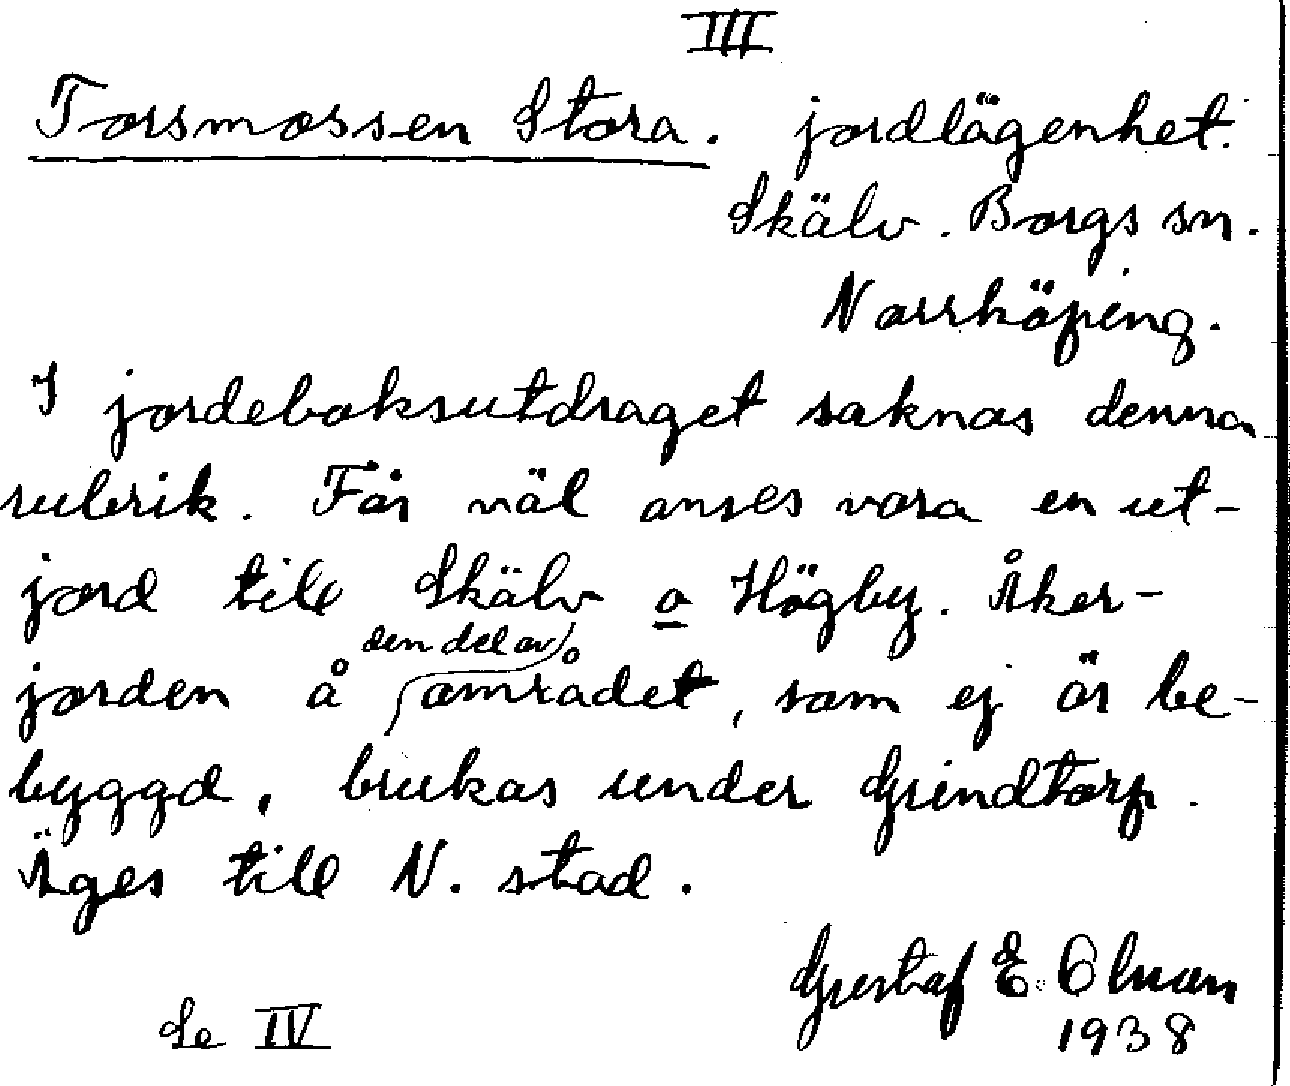 III
Torsmossen Stora. jordlägenhet.
Skälv. Borgs sn.
Norrköping.
I jordeboksutdraget saknas denna
rubrik. Får väl anses vara en ut-
jord till Skälv o Högby. Åker-
jorden å den del av området, som ej är be-
byggd, brukas under Grindtorp.
Äges till N. stad.
Gustaf E. Olman
1938
Se IV